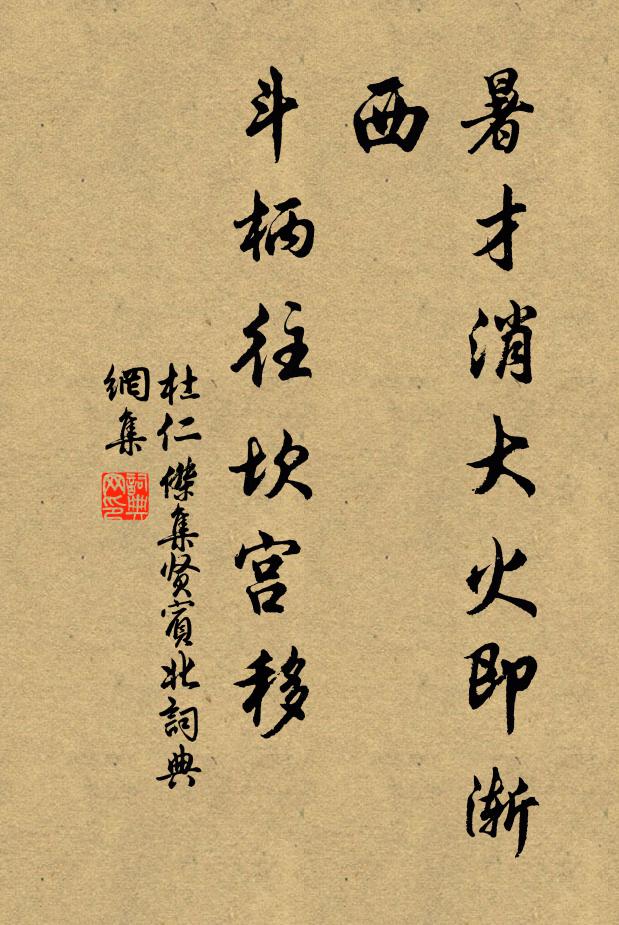 暑才消大火即漸
西
斗柄往坎宮移
杜仁傑集贤賓北詞典
網集
詞典網印